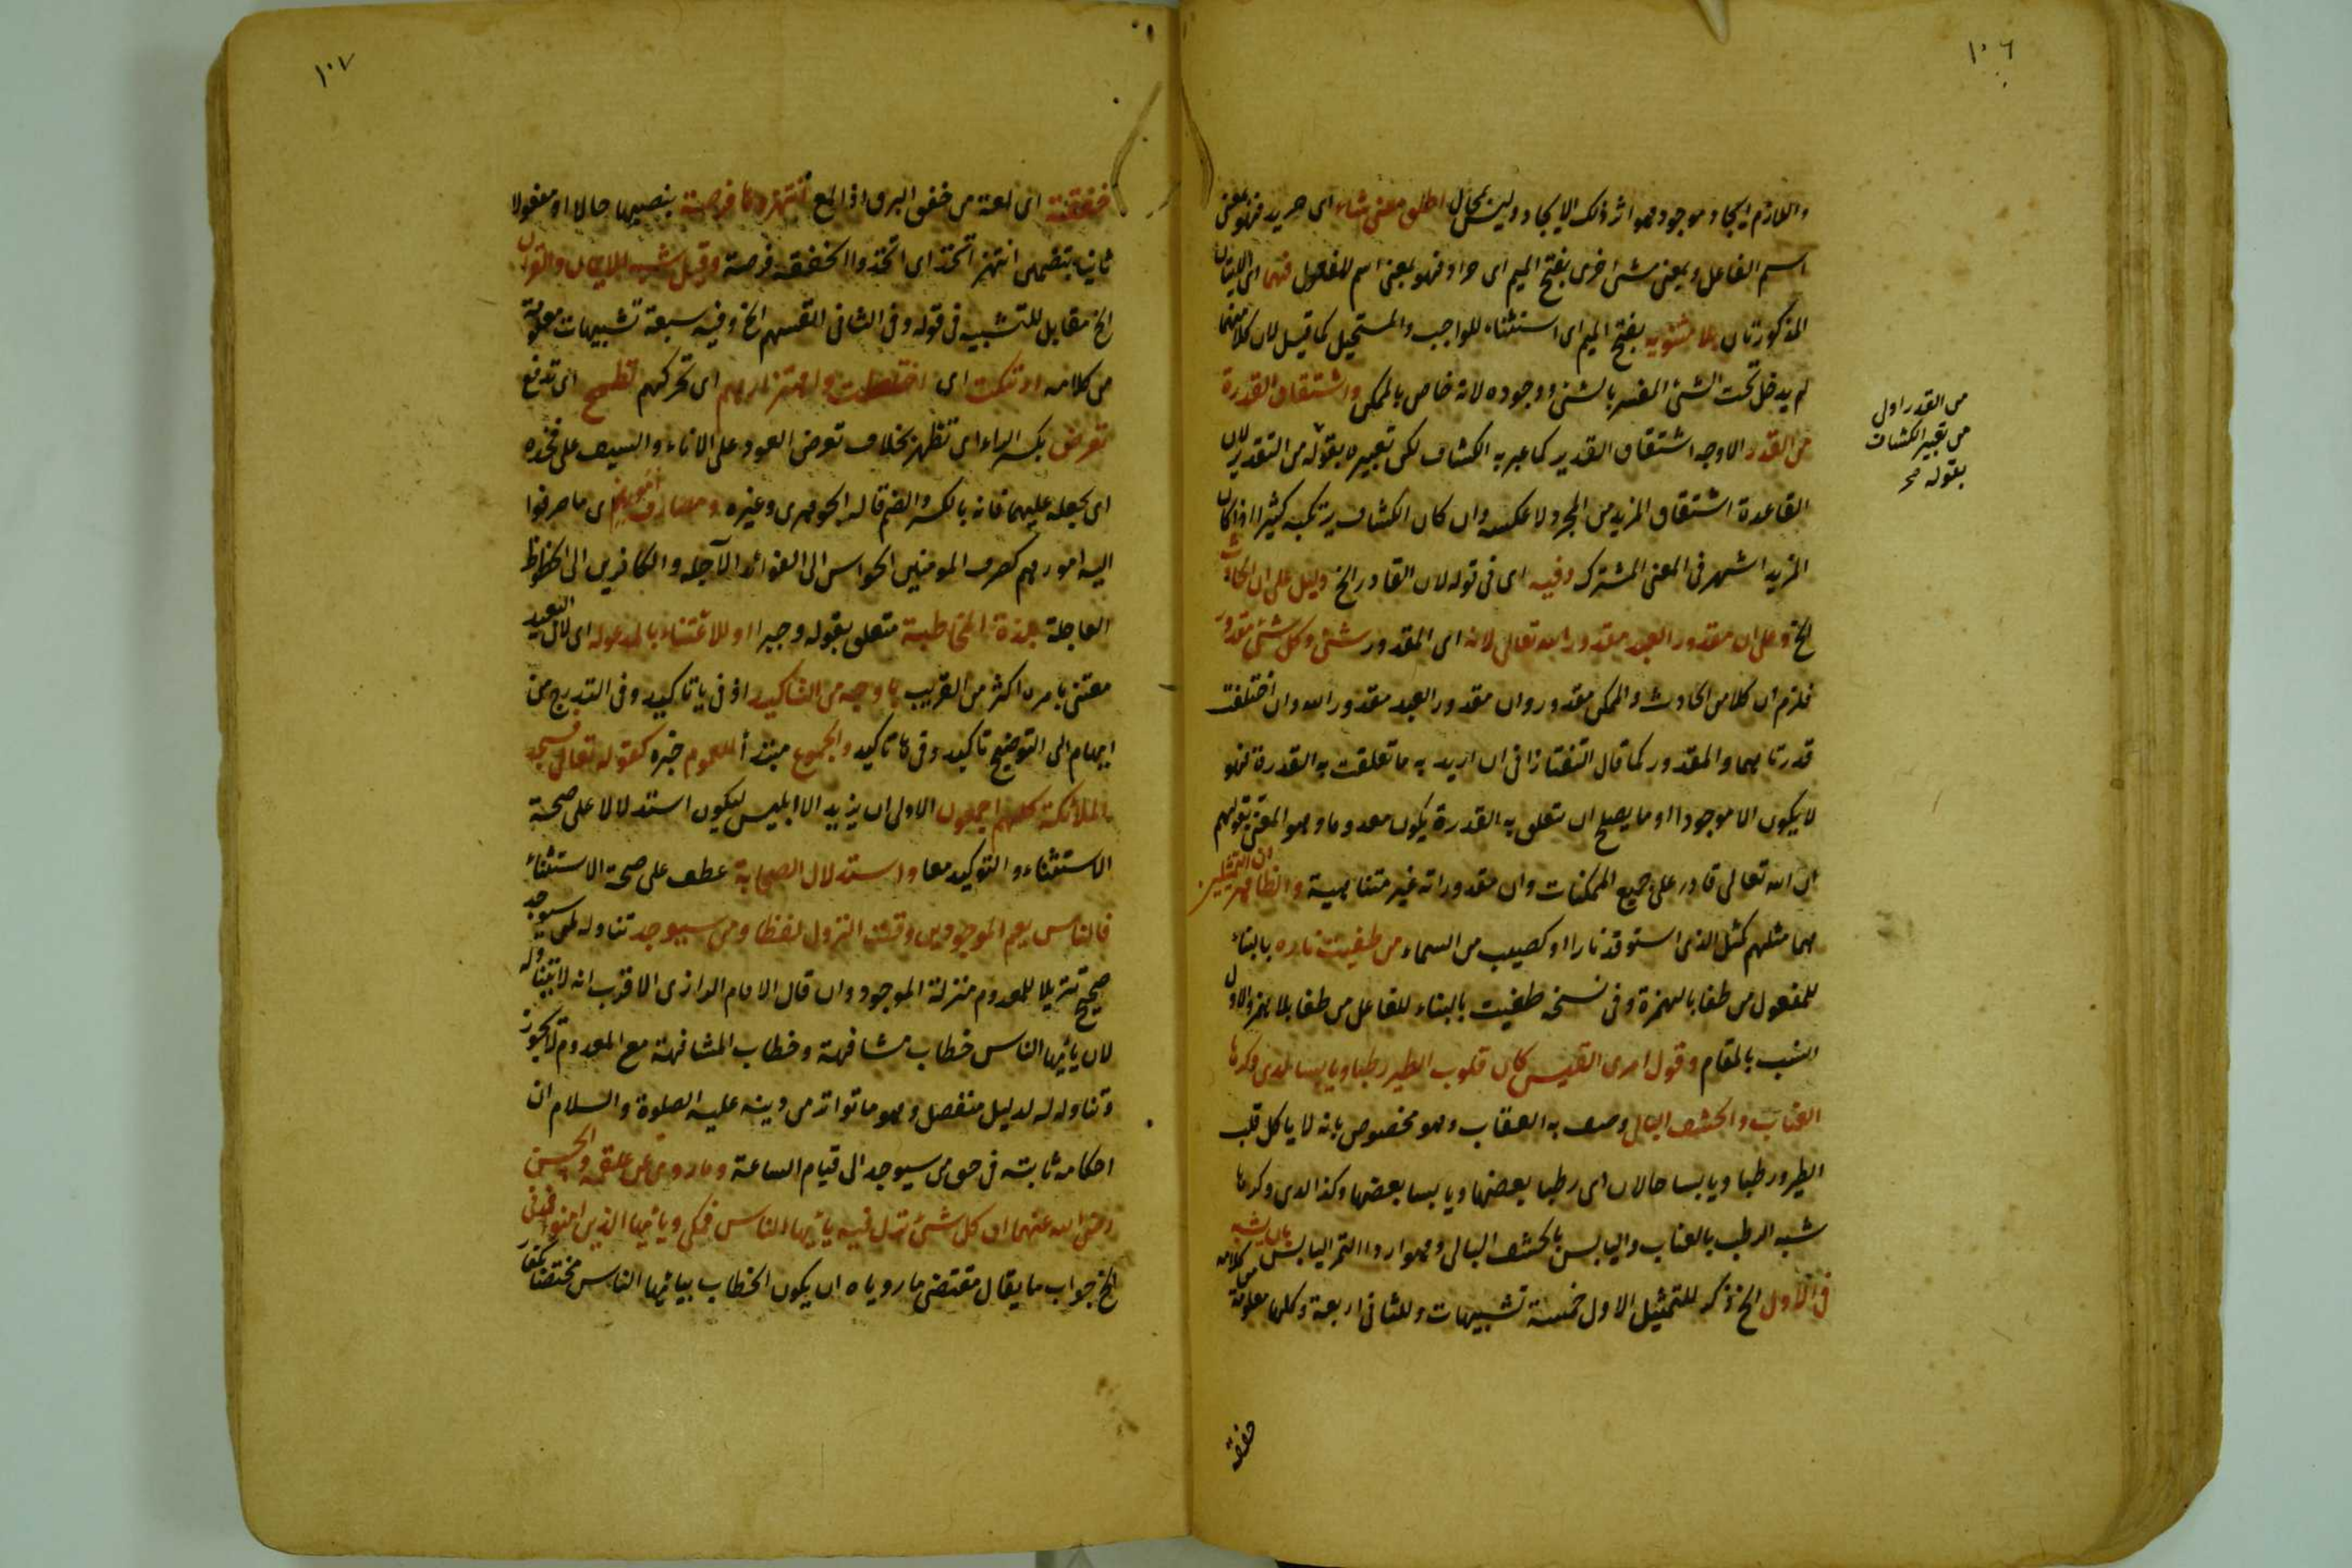 ١٠٦
واللازم ايجاد موجود هو اثر ذلك الايجاد وليس بمحال اطلق معنى شاء اى مريد فهو بمعنى
اسم الفاعل وبمعنى شئ اخرى بفتح الميم اى مراد فهو بمعنى اسم المفعول فهما اى الايتان
المذكورتان بلا مثنوية بفتح الميم اى استثناء للواجب والمستحيل كما قيل لان كلا منهما
لم يدخل تحت الشئ المفسر بالشئ ووجوده لانه خاص بالممكن واشتقاق القدرة
من القدر الاوجه اشتقاق القدير كما عبر به الكشاف لكن تعبيره بقوله من التقدير لان
القاعدة اشتقاق المزيد من المجرد لا عكسه وان كان الكشاف يرتكبه كثيرا اذا كان
المزيد اشهر فى المعنى المشترك وفيه اى فى قوله لان القادر الخ دليل على ان الحادث
الخ وعلى ان مقدور العبد مقدور الله تعالى لانه اى المقدور شئ وكل شئ مقدور
فلزم ان كلا من الحادث والممكن مقدور وان مقدور العبد مقدور الله وان اختلفت
قدرتاهما والمقدور كما قال التفتازانى ان اريد به ما تعلقت به القدرة فهو
لا يكون الا موجودا او ما يصلح ان تتعلق به القدرة يكون معدوما وهو المعنى بقولهم
ان الله تعالى قادر على جميع الممكنات وان مقدوراته غير متناهية والظاهر ان التمثيلين
هما مثلهم كمثل الذى استوقد نارا او كصيب من السماء من طفيت ناره بالبناء
للمفعول من طفا بالهمزة وفى نسخة طفيت بالبناء للفاعل من طفا بلا همز والاول
انسب بالمقام وقول امرى القيس كان قلوب الطير رطبا ويابسا لدى وكرها
العناب والحشف البالى وصف به العقاب وهو مخصوص بانه لا ياكل قلب
الطير ورطبا ويابسا حالان اى رطبا بعضها ويابسا بعضها وكذا لدى وكرها
شبه الرطب بالعناب واليابس بالحشف البالى وهو اردا التمر اليابس بان يشبه
فى الاول الخ ذكر للتمثيل الاول خمسة تشبيهات وللثانى اربعة وكلها معلومة من كلامه
خفقة
من القدر اولى
من تعبير الكشاف
بقوله صح
١٠٧
خفقة اى لمعة من خفق البرق اذا لمع انتهزوها فرصة بنصبهما حالا او مفعولا
ثانيا بتضمين انتهز اتخذ اى اتخذوا الخفقة فرصة وقيل شبه الايمان والقران
الخ مقابل للتشبيه فى قوله وفى الثانى انفسهم الخ وفيه سبعة تشبيهات معلومة
من كلامه ارتبكت اى اختلطت ولاهتزازهم اى تحركهم تطمح اى ترفع
تعرض بكسر الراء اى تظهر بخلاف تعرض العود على الاناء والسيف على فخذه
اى يجعله عليهما فانه بالكسر والضم قاله الجوهرى وغيره ومصارف امورهم اى ما صرفوا
اليه امورهم كصرف المومنين الحواس الى الفوائد الآجلة والكافرين الى الحظوظ
العاجلة بلذة المخاطبة متعلق بقوله وجبرا او للاعتناء بالمدعو له اى لان البعيد
معتنى بامره اكثر من القريب باوجه من التاكيد اذ فى يا تاكيد وفى التدرج من
ابهام الى التوضيح تاكيد وفى ها تاكيد والجموع مبتدأ للعموم خبره كقوله تعالى فسجد
الملائكة كلهم اجمعون الاولى ان يزيد الا ابليس ليكون استدلالا على صحة
الاستثناء والتوكيد معا واستدلال الصحابة عطف على صحة الاستثناء
فالناس يعم الموجودين وقت النزول لفظا ومن سيوجد تناوله لمن سيوجد
صحيح تنزيلا للمعدوم منزلة الموجود وان قال الامام الرازى الاقرب انه لا يتناوله
لان يا ايها الناس خطاب مشافهة وخطاب المشافهة مع المعدوم لا يجوز
وتناوله له لدليل منفصل وهو ما تواتر من دينه عليه الصلوة والسلام ان
احكامه ثابتة فى حق من سيوجد الى قيام الساعة وما روى عن علقمة والحسن
رضى الله عنهما ان كل شئ نزل فيه يا ايها الناس فمكى ويا ايها الذين امنوا فمدنى
الخ جواب ما يقال مقتضى ما روياه ان يكون الخطاب بيا ايها الناس مختصا بكفار